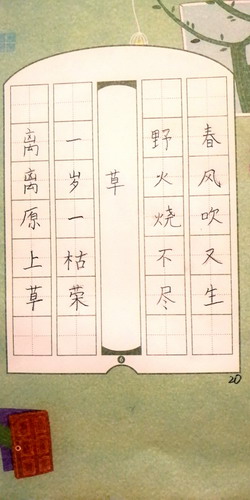 离离原上草
一岁一枯荣
草
野火烧不尽
春风吹又生
20